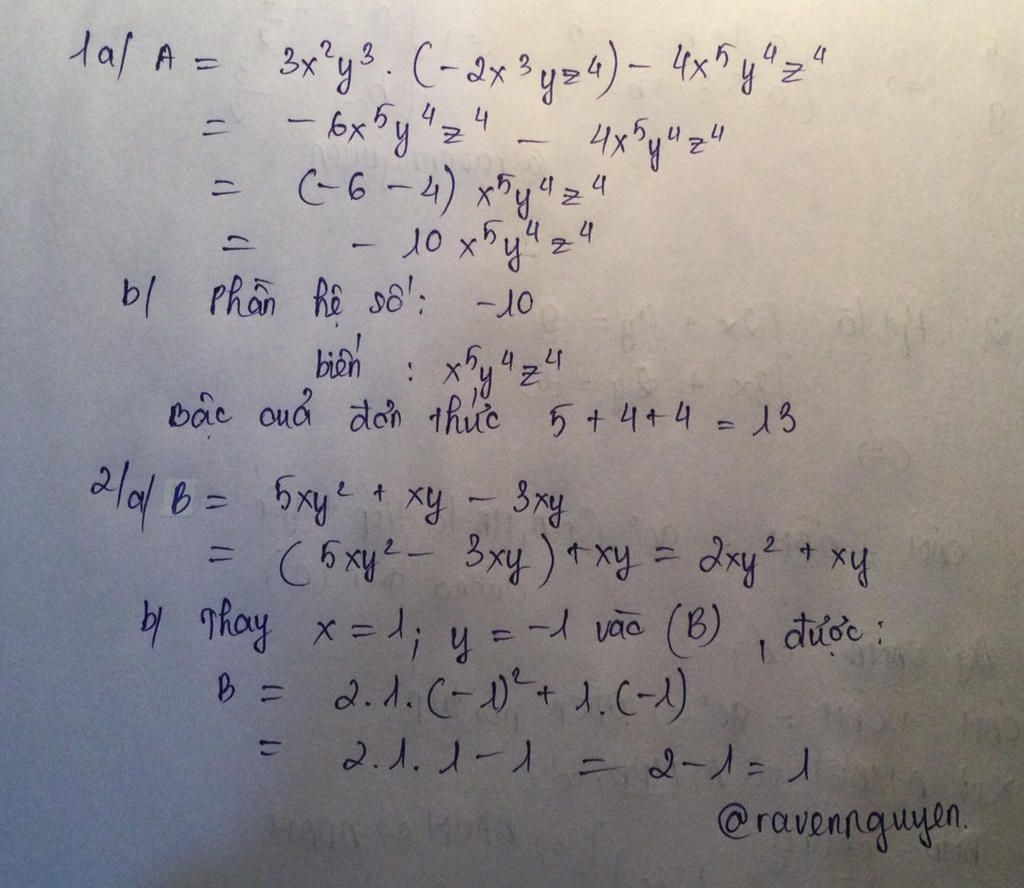 1a/ A = 3x²y³ . (-2x³yz⁴) - 4x⁵y⁴z⁴
= - 6x⁵y⁴z⁴ - 4x⁵y⁴z⁴
= (-6 - 4) x⁵y⁴z⁴
= - 10 x⁵y⁴z⁴
b/ Phần hệ số: -10
biến : x⁵y⁴z⁴
Bậc cuả đơn thức 5 + 4 + 4 = 13
2/a/ B = 5xy² + xy - 3xy
= (5xy² - 3xy) + xy = 2xy² + xy
b/ Thay x = 1; y = -1 vào (B) , được:
B = 2.1.(-1)² + 1.(-1)
= 2.1.1 - 1 = 2 - 1 = 1
@ravennguyen.